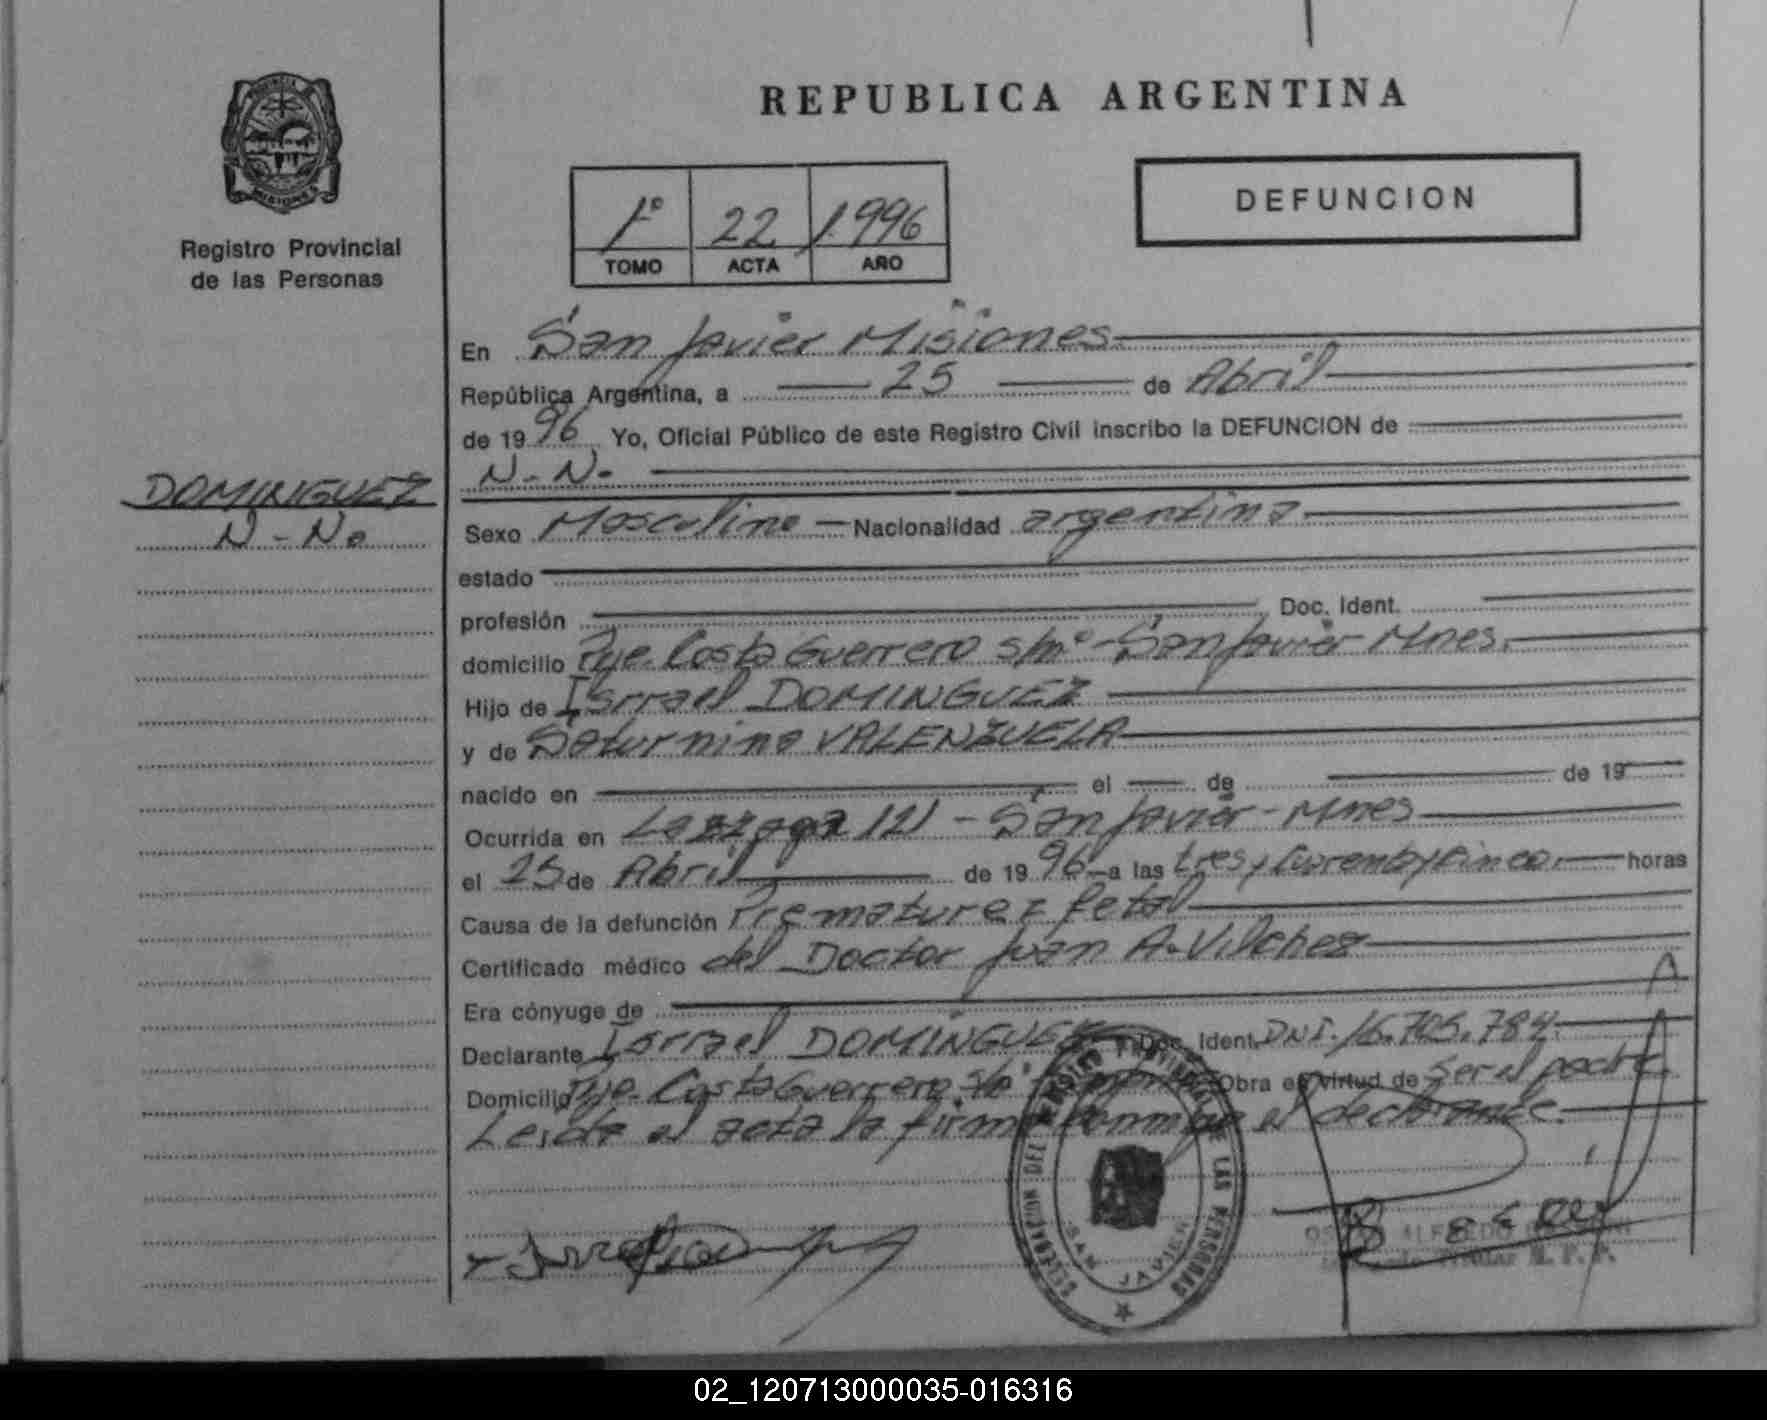 REPUBLICA ARGENTINA
DEFUNCION
1º 22 1.996
TOMO ACTA AÑO
Registro Provincial
de las Personas
DOMINGUEZ
N-N.
En San Javier Misiones.
República Argentina, a 25 de Abril
de 1996 Yo, Oficial Público de este Registro Civil inscribo la DEFUNCION de
N-N.
Sexo Masculino - Nacionalidad argentina
estado
profesión Doc. Ident.
domicilio Pje. Costa Guerrero s/nº - San Javier Mnes.
Hijo de Isrrael DOMINGUEZ
y de Saturnina VALENZUELA
nacido en el de de 19
Ocurrida en 121 - San Javier - Mnes
el 25 de Abril de 1996 - a las tres y cuarenta y cinco. horas
Causa de la defunción Prematurez fetal
Certificado médico del Doctor Juan A. Vilchez
Era cónyuge de
Declarante Isrrael DOMINGUEZ Doc. Ident. DNI. 16.705.784.
Domicilio Pje. Costa Guerrero s/nº Obra en virtud de ser el padre
Leida el acta la firma conmigo el declarante.
REGISTRO PROVINCIAL DE LAS PERSONAS
SAN JAVIER
ALFREDO
Titular R. P. P.
02_120713000035-016316